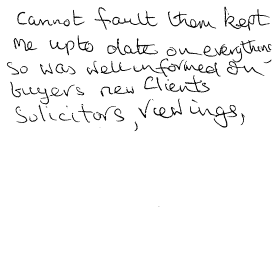 Cannot fault them kept
me upto date on everything
So was well informed on
buyers new Clients
Solicitors, viewings,